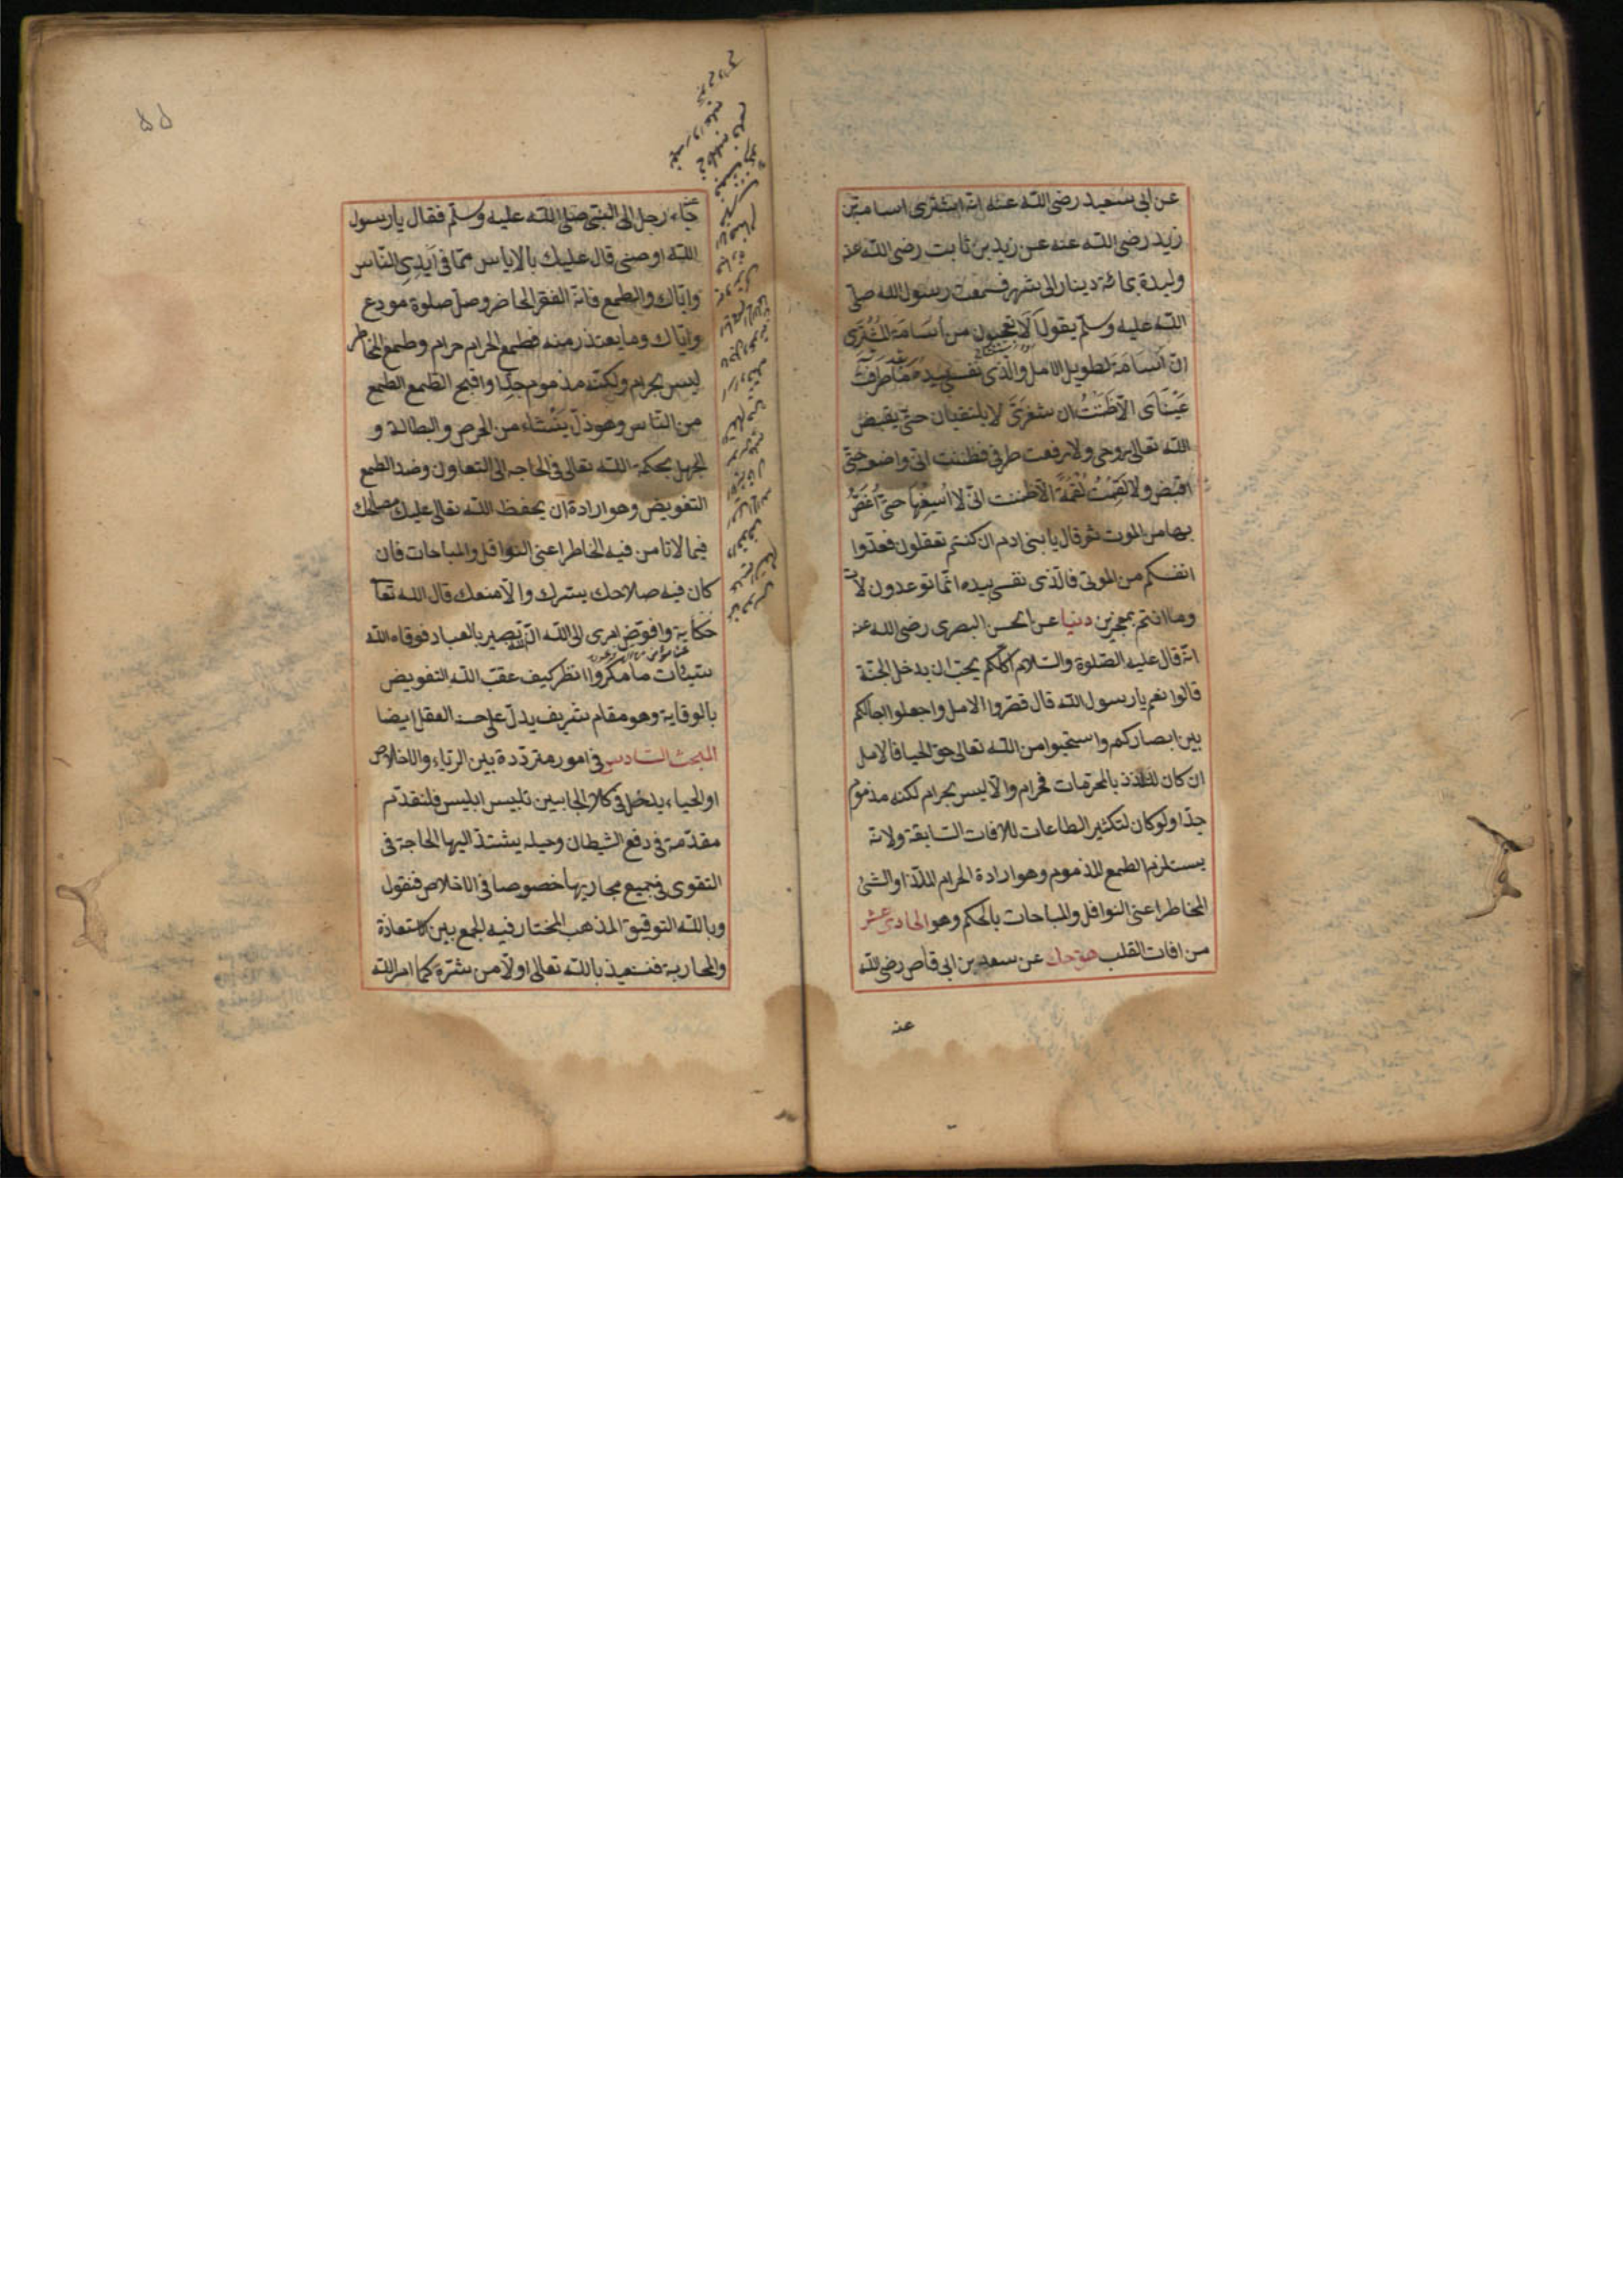 عن ابى سعيد رضى الله عنه انه اشترى اسامة بن
زيد رضى الله عنه عن زيد بن ثابت رضى الله عنه
وليدة بمائة دينار الى شهر فسمعت رسول الله صلى
الله عليه وسلم يقول الا تعجبون من اسامة المشترى
ان اسامة لطويل الامل والذى نفسى بيده ما طرفت
عيناى الا ظننت ان شفرى لا يلتقيان حتى يقبض
الله تعالى روحى ولا رفعت طرفى فظننت انى واضعه حتى
اقبض ولا لقمت لقمة الا ظننت انى لا اسيغها حتى اغص
بها من الموت ثم قال يا بنى ادم ان كنتم تعقلون فعدوا
انفسكم من الموتى فالذى نفسى بيده انما توعدون لآت
وما انتم بمعجزين دنيا عن الحسن البصرى رضى الله عنه
انه قال عليه الصلوة والسلام اكلكم يحب ان يدخل الجنة
قالوا نعم يا رسول الله قال قصروا الامل واجعلوا اجالكم
بين ابصاركم واستحيوا من الله تعالى حق الحيا فالامل
ان كان للتلذذ بالمحرمات فحرام والا ليس بحرام لكنه مذموم
جدا ولو كان لتكثير الطاعات للافات السابقة ولانه
يستلزم الطمع المذموم وهو ارادة الحرام الملذ او الشئ
المخاطر اعنى النوافل والمباحات بالحكم وهو الحادى عشر
من افات القلب هق حك عن سعد بن ابى قاص رضى الله
عنه
٥٥
جاء رجل الى النبى صلى الله عليه وسلم فقال يا رسول
الله اوصنى قال عليك بالاياس مما فى ايدى الناس
واياك والطمع فانه الفقر الحاضر وصل صلوة مودع
واياك وما يعتذر منه فطمع الحرام حرام وطمع المخاطر
ليس بحرام ولكنه مذموم جدا واقبح الطمع الطمع
من الناس وهو ذل ينشاء من الحرص والبطالة و
الجهل بحكمة الله تعالى فى الحاجه الى التعاون وضد الطمع
التفويض وهو ارادة ان يحفظ الله تعالى عليك مصلحتك
فيما لا تامن فيه الخاطر اعنى النوافل والمباحات فان
كان فيه صلاحك يسرك والا منعك قال الله تعا
حكاية وافوض امرى الى الله ان الله بصير بالعباد فوقاه الله
سيئات ما مكروا انظر كيف عقب الله التفويض
بالوقاية وهو مقام شريف يدل على حسنه العقل ايضا
المبحث السادس فى امور مترددة بين الرياء والاخلاص
او الحياء يدخل فى كلا الجانبين تلبيس ابليس فلنقدم
مقدمة فى دفع الشيطان وحيله يشتد اليها الحاجة فى
التقوى فى جميع مجاريها خصوصا فى الاخلاص فنقول
وبالله التوفيق المذهب المختار فيه الجمع بين الاستعاذة
والمحاربة فنستعيذ بالله تعالى اولا من شره كما امر الله